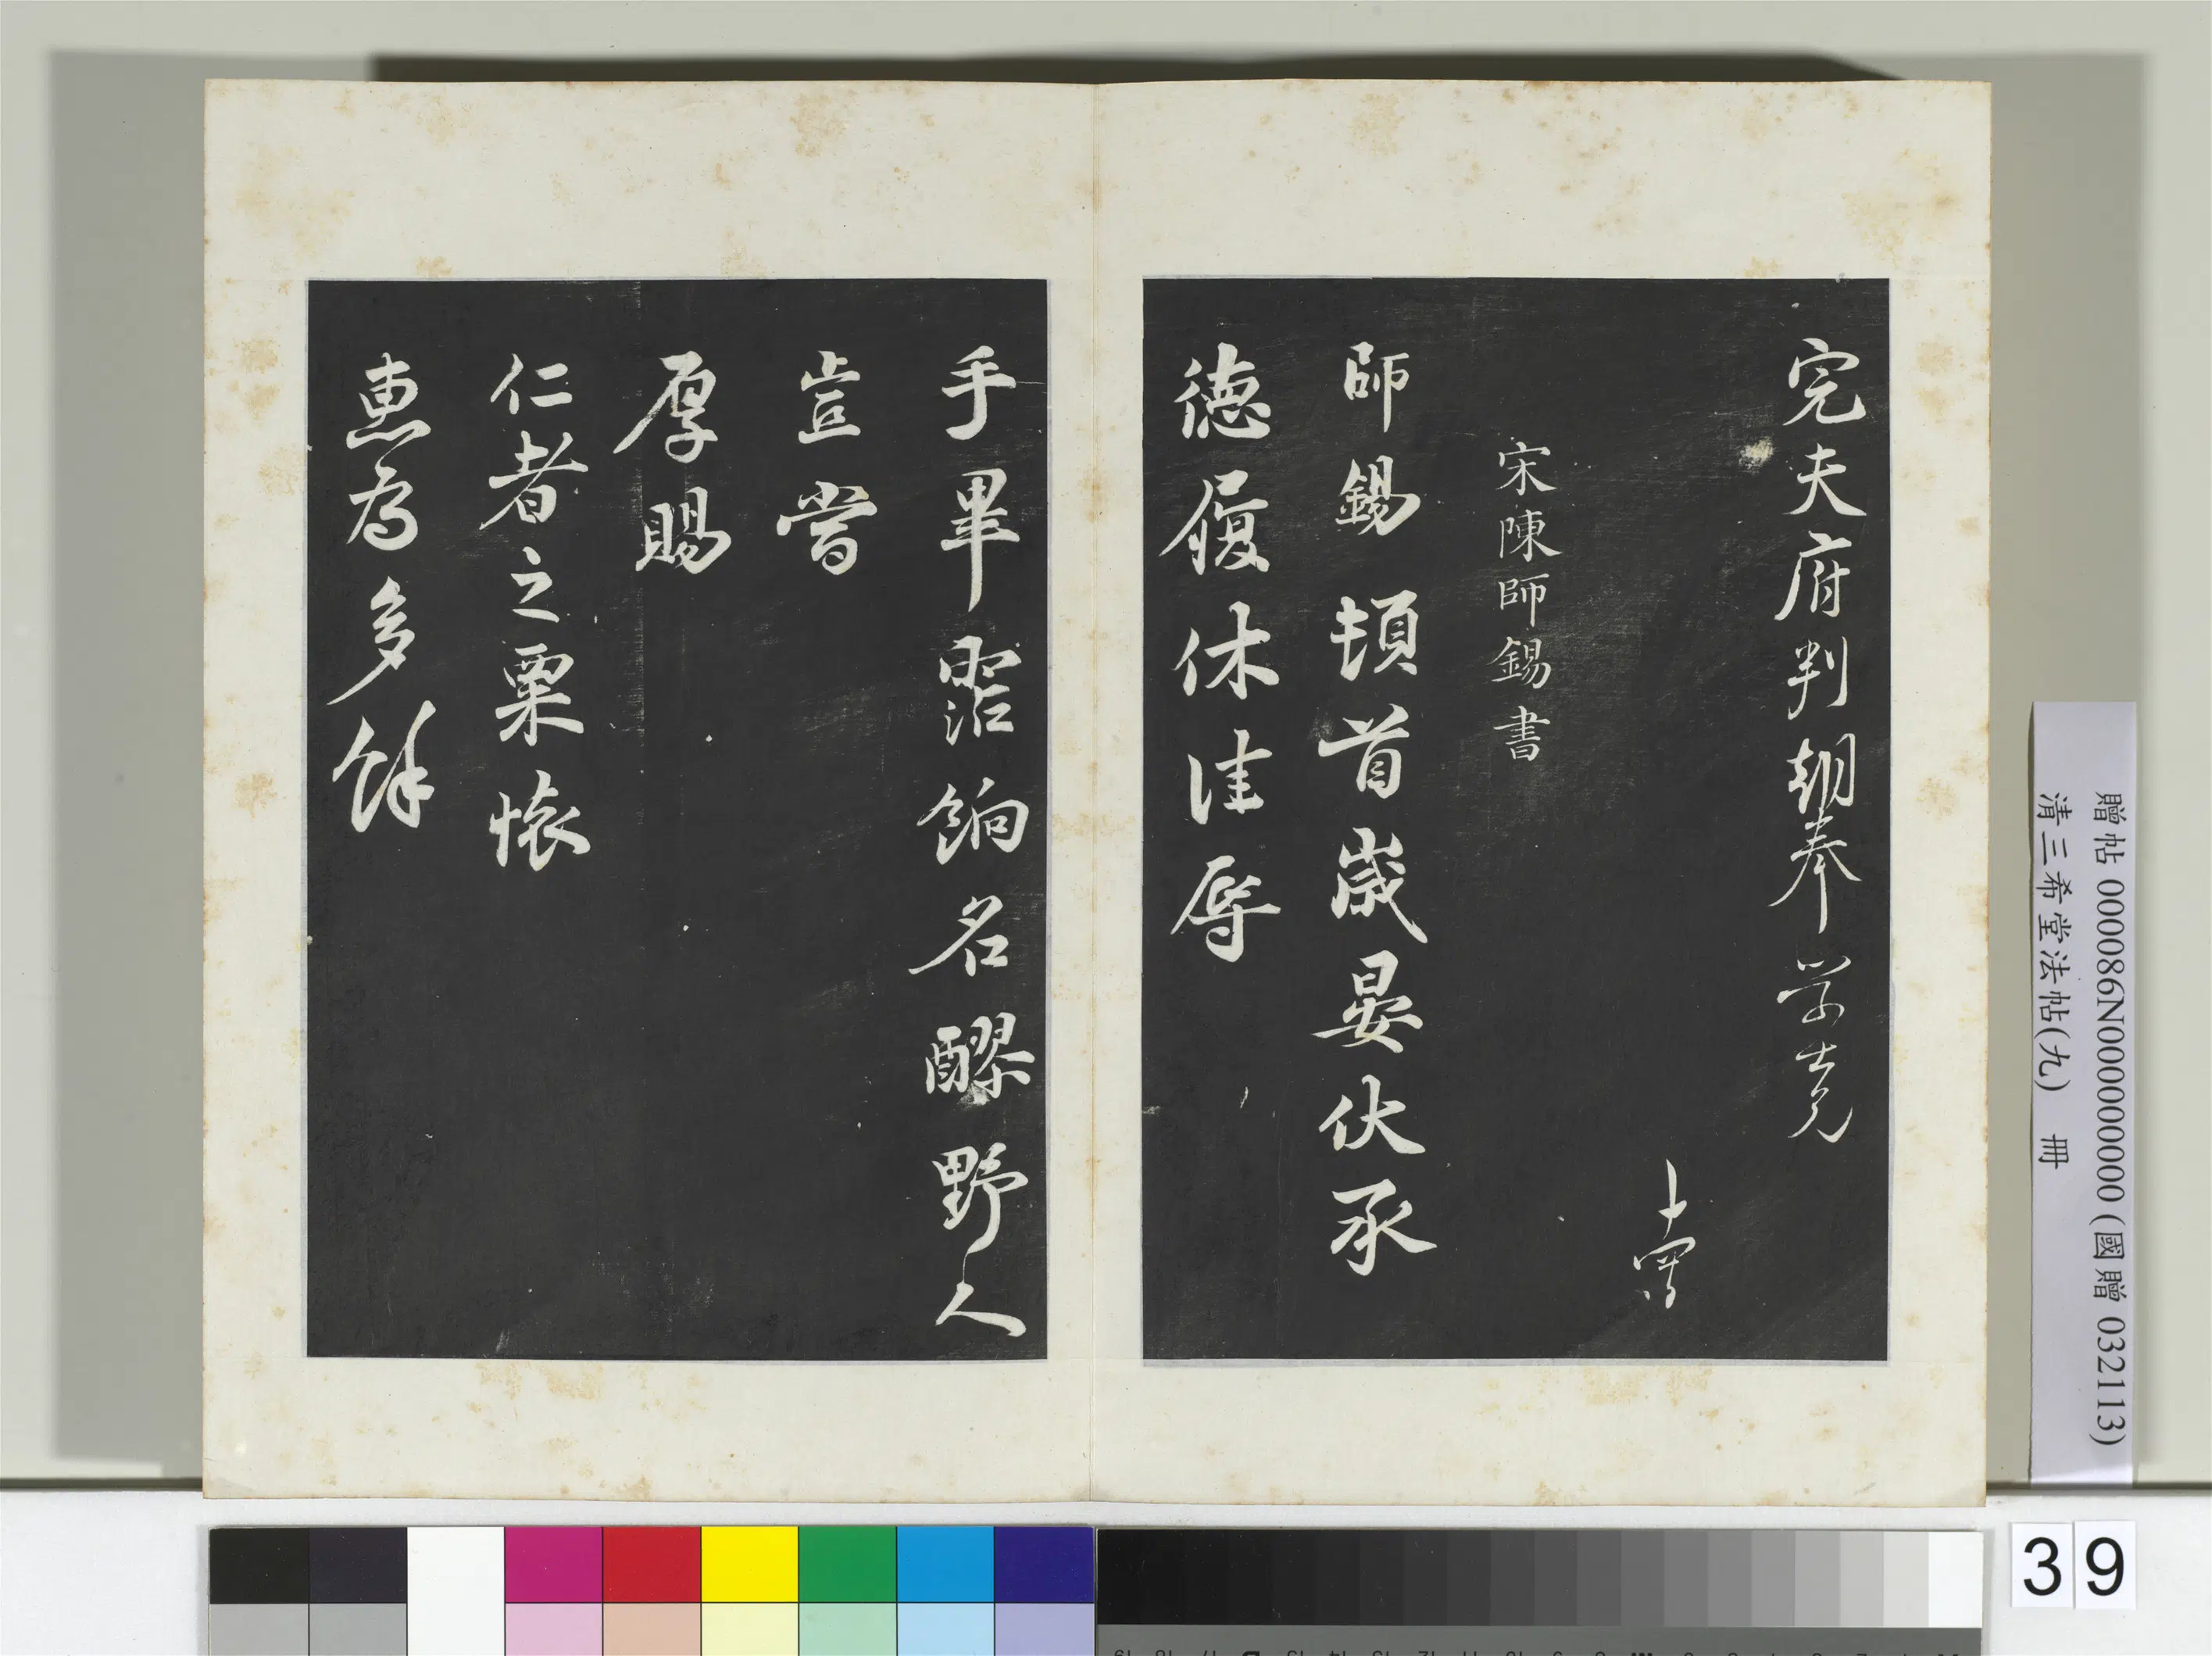 完夫府判朝奉學士兄
宋陳師錫書
師錫頓首歲晏伏承
德履休佳辱
手畢霑餉名醪野人
豈當
厚賜
仁者之粟懷
惠為多餘
贈帖 000086N000000000 (國贈 032113)
清三希堂法帖(九) 冊
39